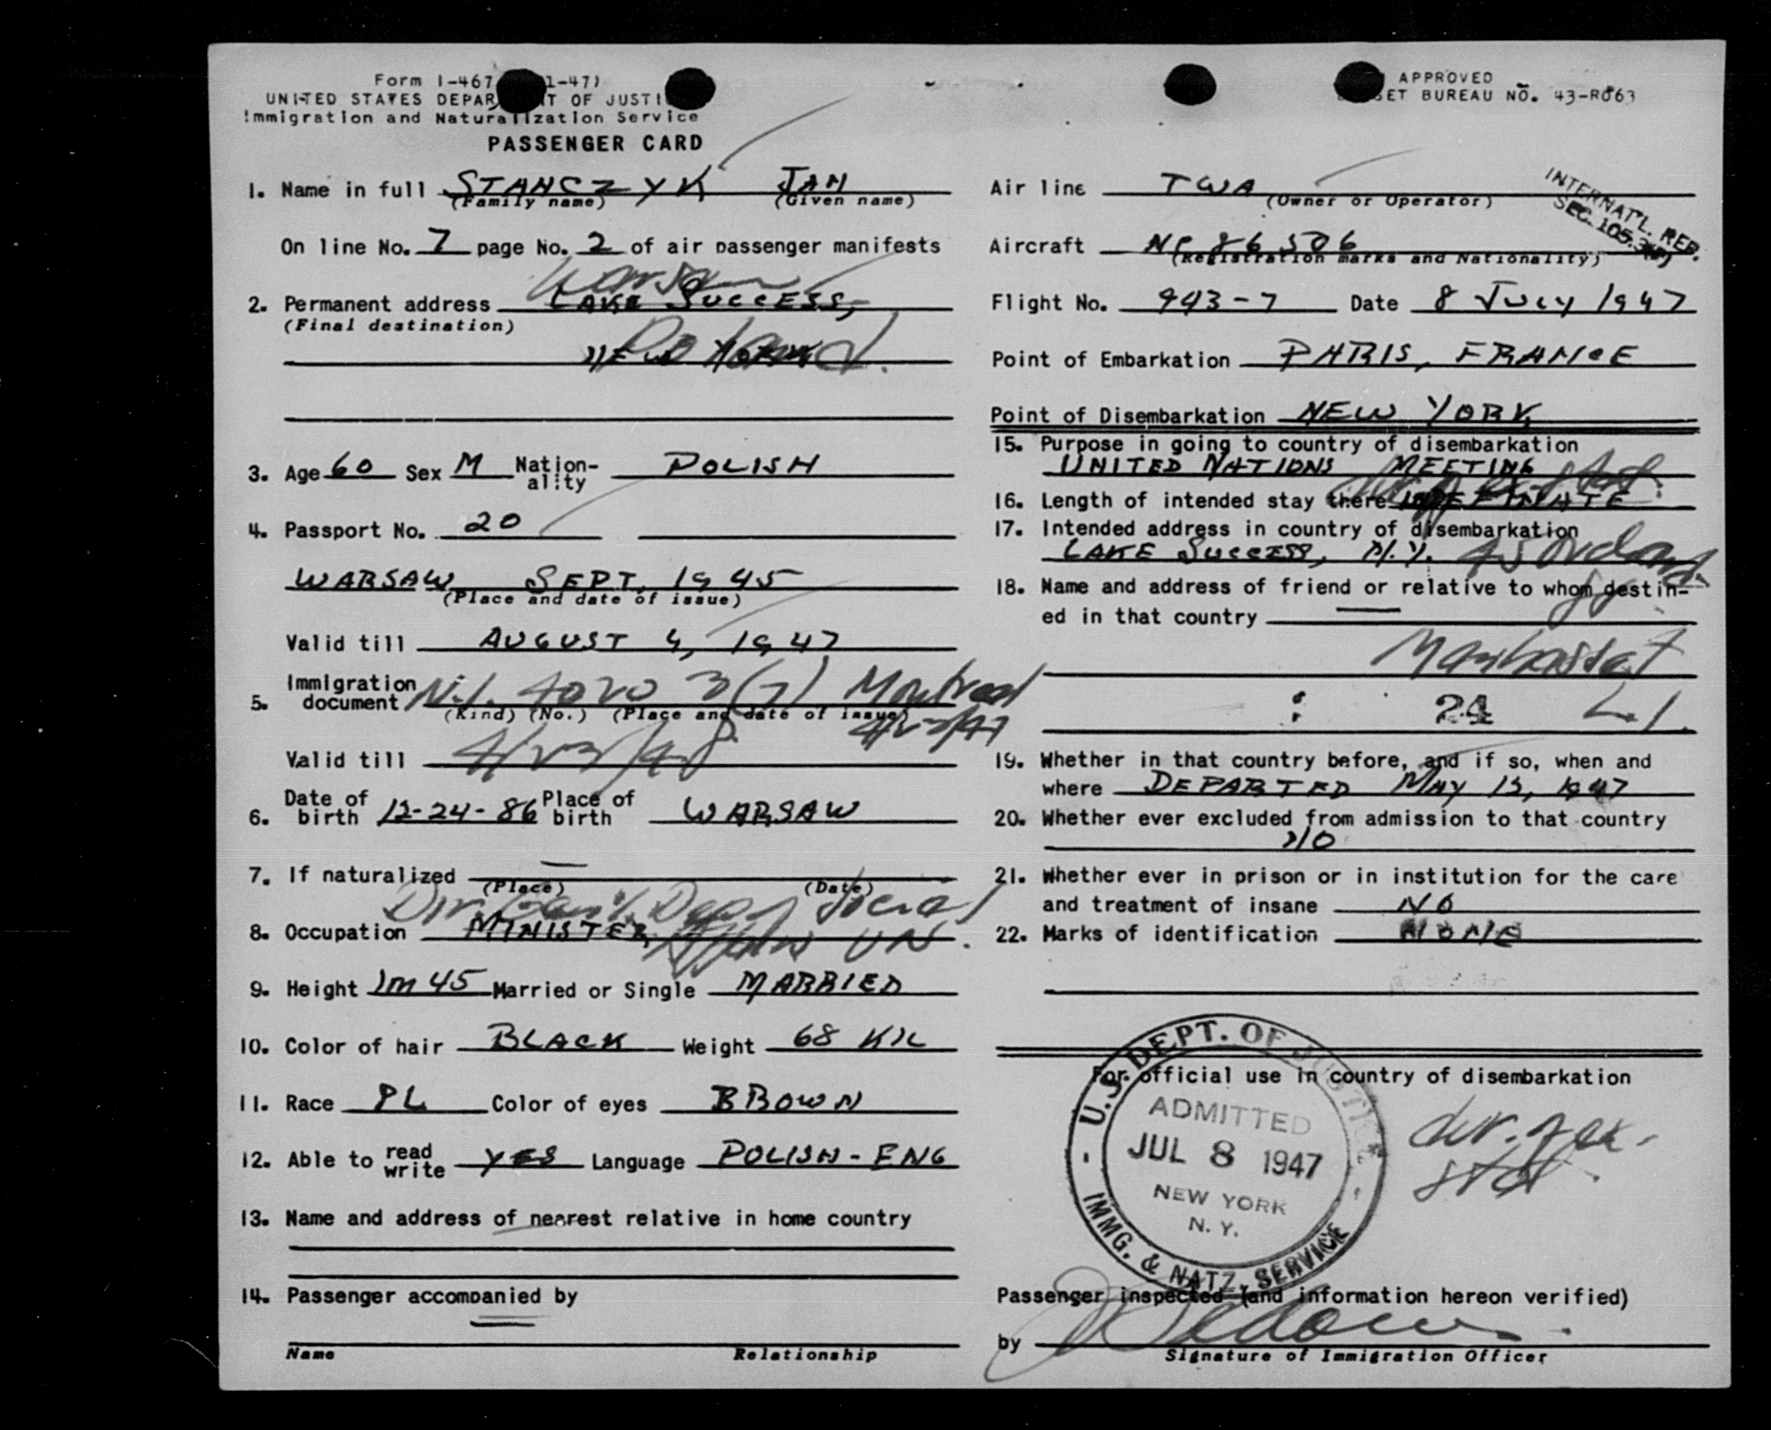 Form I-467 1-47)
UNITED STATES DEPAR T OF JUSTI
Immigration and Naturalization Service
PASSENGER CARD
1. Name in full STANCZYK JAN
(Family name) (Given name)
On line No. 7 page No. 2 of air passenger manifests
Warsaw
2. Permanent address LAKE SUCCESS,
(Final destination)
NEW YORK Poland.
3. Age 60 Sex M Nation-ality POLISH
4. Passport No. 20
WARSAW SEPT. 1945
(Place and date of issue)
Valid till AUGUST 4, 1947
5. Immigration document N.I. 4020 3(7) Montreal
(Kind) (No.) (Place and date of issue)
4/23/47
Valid till 4/23/48
6. Date of birth 12-24-86 Place of birth WARSAW
7. If naturalized —
(Place) (Date)
Dir. Dep Social
8. Occupation MINISTER Affairs UN.
9. Height 1m45 Married or Single MARRIED
10. Color of hair BLACK Weight 68 KIL
11. Race PL Color of eyes BROWN
12. Able to read write YES Language POLISH-ENG
13. Name and address of nearest relative in home country
14. Passenger accompanied by
Name Relationship
APPROVED
ET BUREAU NO. 43-R063
Air line TWA
(Owner or Operator)
INTERNAT'L. REG.
SEC. 105.3
Aircraft NC 86506
(Registration marks and Nationality)
Flight No. 943-7 Date 8 JULY 1947
Point of Embarkation PARIS, FRANCE
Point of Disembarkation NEW YORK
15. Purpose in going to country of disembarkation
UNITED NATIONS MEETING
16. Length of intended stay there INDEFINATE
17. Intended address in country of disembarkation
LAKE SUCCESS, N.Y.
18. Name and address of friend or relative to whom destin-
ed in that country —
Manhasset
24 L.I.
19. Whether in that country before, and if so, when and
where DEPARTED MAY 13, 1947
20. Whether ever excluded from admission to that country
NO
21. Whether ever in prison or in institution for the care
and treatment of insane NO
22. Marks of identification NONE
For official use in country of disembarkation
U.S. DEPT. OF JUSTICE
ADMITTED
JUL 8 1947
NEW YORK
N. Y.
IMMG. & NATZ. SERVICE
dur. of
stat.
Passenger inspected (and information hereon verified)
by
Signature of Immigration Officer